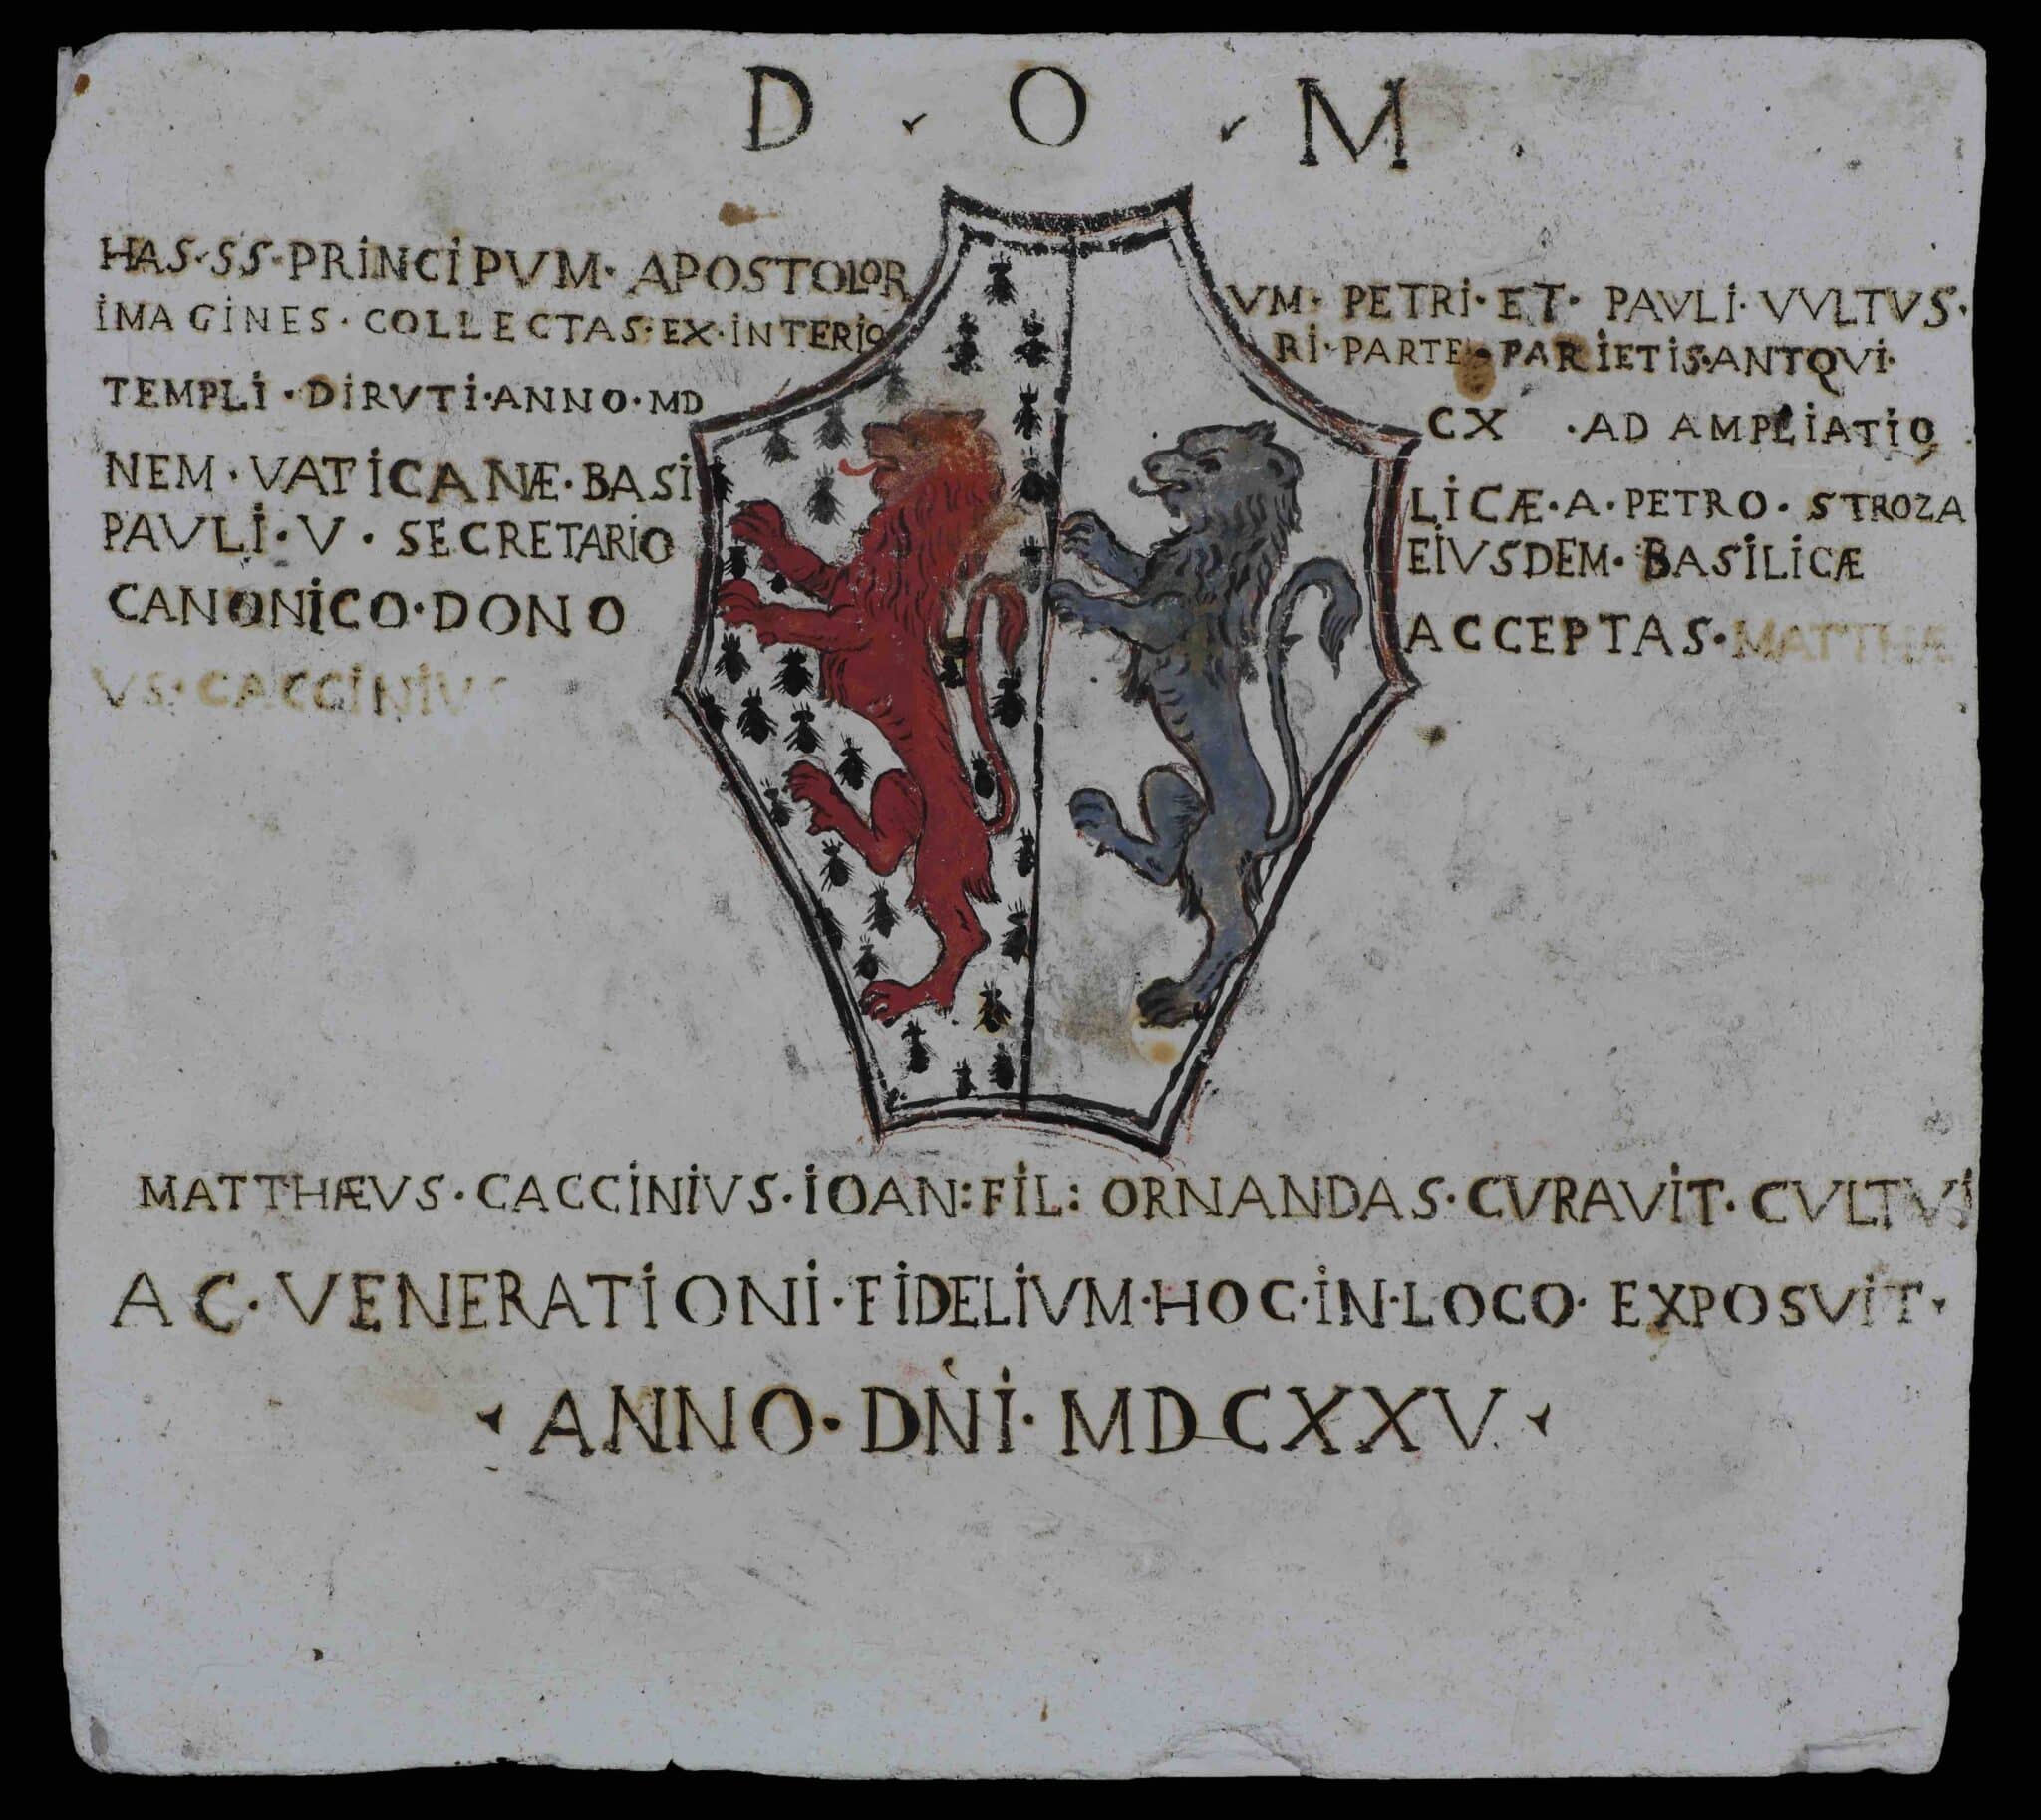 D · O · M
HAS · SS · PRINCIPVM · APOSTOLORVM · PETRI · ET · PAVLI · VVLTVS ·
IMAGINES · COLLECTAS · EX · INTERIORI · PARTE · PARIETIS · ANTQVI ·
TEMPLI · DIRVTI · ANNO · MDCX · AD AMPLIATIO
NEM · VATICANÆ · BASILICÆ · A · PETRO · STROZA
PAVLI · V · SECRETARIO EIVSDEM · BASILICÆ
CANONICO · DONO ACCEPTAS · MATTHÆ
VS · CACCINIVS
MATTHÆVS · CACCINIVS · IOAN : FIL : ORNANDAS · CVRAVIT · CVLTVI
AC · VENERATIONI · FIDELIVM · HOC · IN · LOCO · EXPOSVIT ·
· ANNO · DN̄I · MDCXXV ·